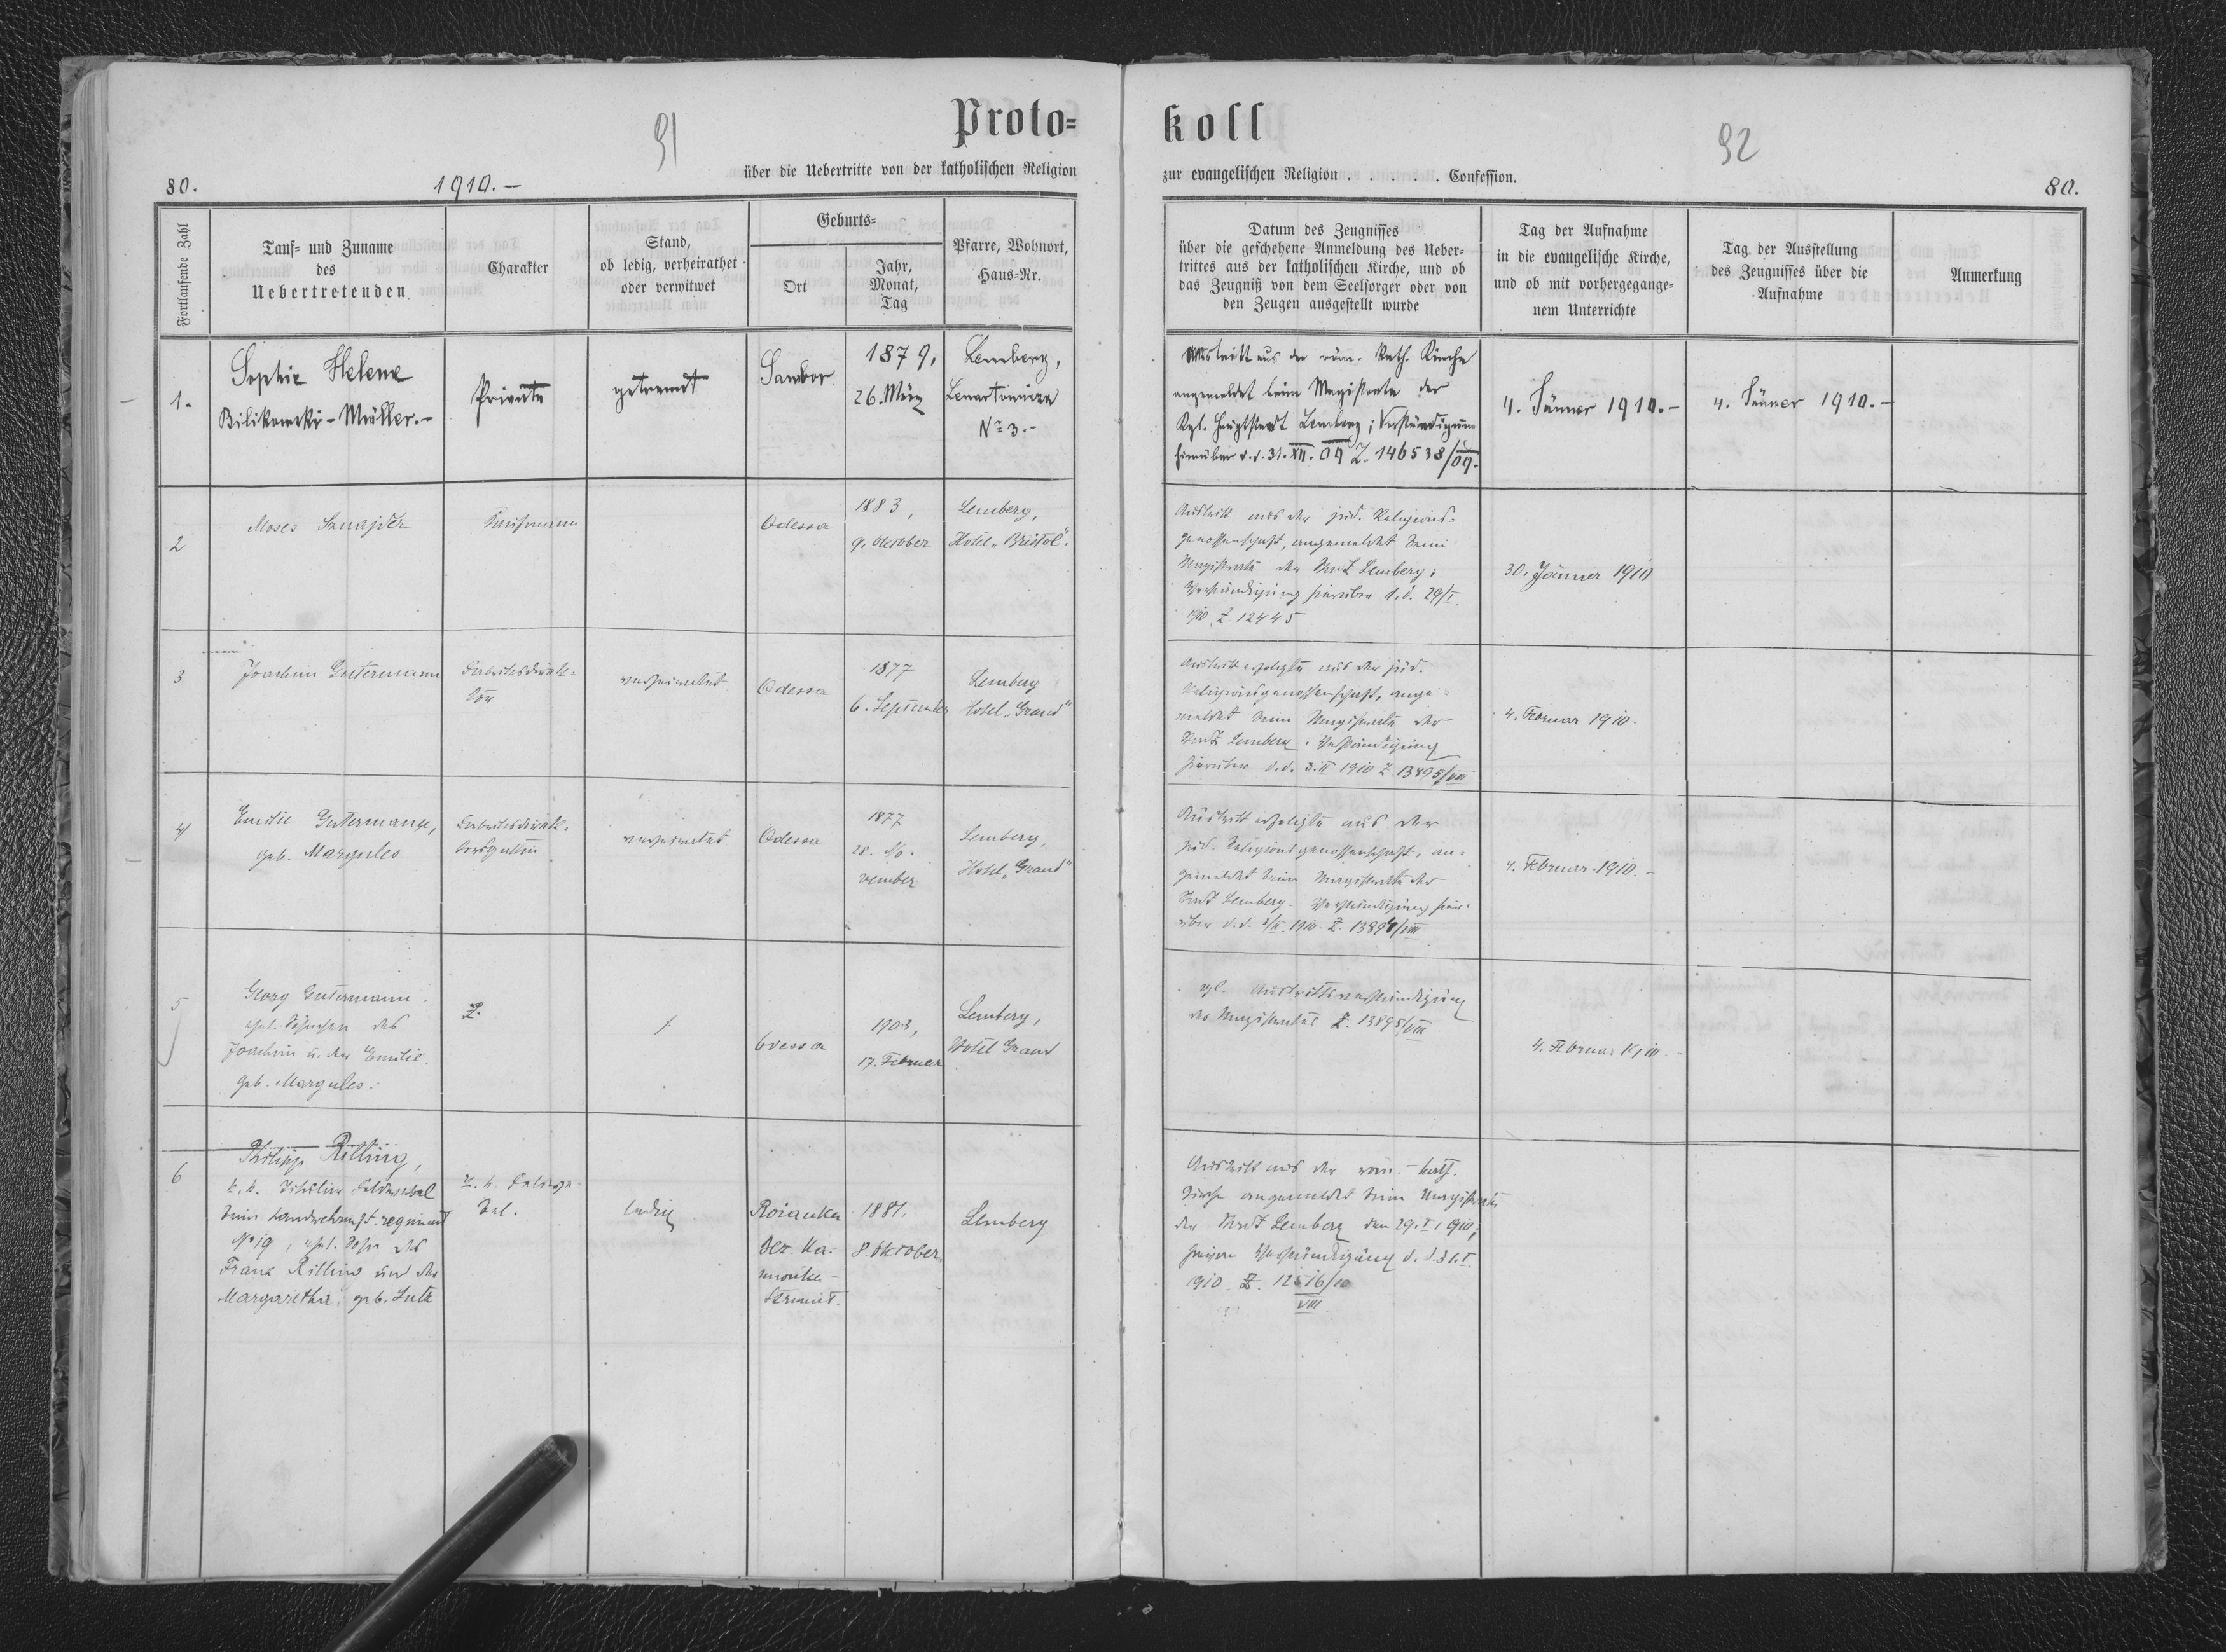 91
Proto=
über die Uebertritte von der katholischen Religion
80.
1910.-
Fortlaufende Zahl
Tauf= und Zuname
des
Uebertretenden
Charakter
Stand,
ob ledig, verheirathet
oder verwitwet
Geburts=
Ort
Jahr,
Monat,
Tag
Pfarre, Wohnort,
Haus=Nr.
1.
Sophie Helene
Bilikowski-Müller.-
Private
getrennt
Sambor
1879,
26. März
Lemberg,
No 3.-
2
Moses
Kaufmann
Odessa
1883,
9. Oktober
Lemberg,
Hotel „Bristol".
3
Joachim Gutermann
Fabriksdirek=
tor
verheiratet
Odessa
1877
6. September
Lemberg
Hotel „Grand"
4
Emilie Gutermann,
geb. Margules
Fabriksdirek=
torsgattin
verheiratet
Odessa
1877
28. No=
vember
Lemberg,
Hotel „Grand"
5
Georg Gutermann,
ehel. Söhnchen des
Joachim u. der Emilie
geb. Margules.
Odessa
1903,
17. Februar
Lemberg,
Hotel Grand
6
Philipp Rilling,
k. k. Feldwebel
beim Landwehr regiment
No 19, ehel. Sohn des
Franz Rilling und der
Margaretha, geb. Lutz
k. k. Feldwe=
bel.
ledig
Bez. Ka=
mionka-
Strumil.
1881.
8. Oktober
Lemberg
koll
92
zur evangelischen Religion . . . . . . Confession.
80.
Datum des Zeugnisses
über die geschehene Anmeldung des Ueber=
trittes aus der katholischen Kirche, und ob
das Zeugniß von dem Seelsorger oder von
den Zeugen ausgestellt wurde
Tag der Aufnahme
in die evangelische Kirche,
und ob mit vorhergegange=
nem Unterrichte
Tag der Ausstellung
des Zeugnisses über die
Aufnahme
Anmerkung
Austritt aus der röm. kath. Kirche
angemeldet beim Magistrate der
Kgl. Hauptstadt Lemberg; Verständigung
hierüber d.d. 31. XII. 09 Z. 146538/09.
4. Jänner 1910.-
4. Jänner 1910.-
Austritt aus der jüd. Religions=
genossenschaft, angemeldet beim
Magistrate der Stadt Lemberg;
Verständigung hierüber d.d. 29/I.
1910, Z. 12445
30. Jänner 1910
Austritt erfolgte aus der jüd.
Religionsgenossenschaft, ange=
meldet beim Magistrate der
Stadt Lemberg. Verständigung
hierüber d.d. 3. II 1910 Z. 13895/VIII
4. Februar 1910.
Austritt erfolgte aus der
jüd. Religionsgenossenschaft, an=
gemeldet beim Magistrate der
Stadt Lemberg. Verständigung hier=
über d.d. 1910. Z.
4. Februar 1910.-
vgl. Austrittsverständigung
des Magistrates Z. 13895/VIII
4. Februar 1910.-
Austritt aus der röm.-kath.
Kirche angemeldet beim Magistrate
der Stadt Lemberg den 29. I. 1910;
Verständigung d.d. 31. I.
1910. Z. 12516/10
VIII